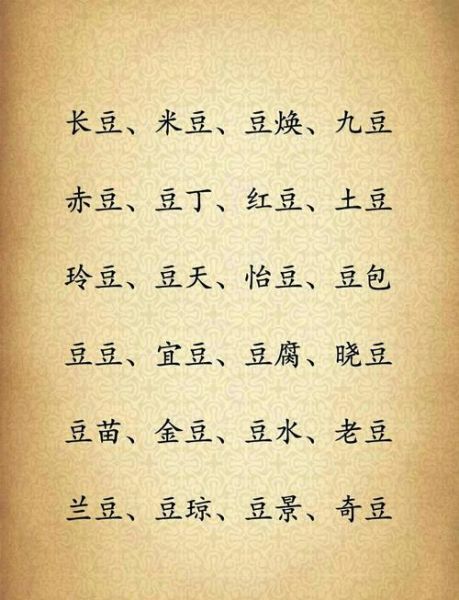 长豆、米豆、豆焕、九豆
赤豆、豆丁、红豆、土豆
玲豆、豆天、怡豆、豆包
豆豆、宜豆、豆腐、晓豆
豆苗、金豆、豆水、老豆
兰豆、豆琼、豆景、奇豆